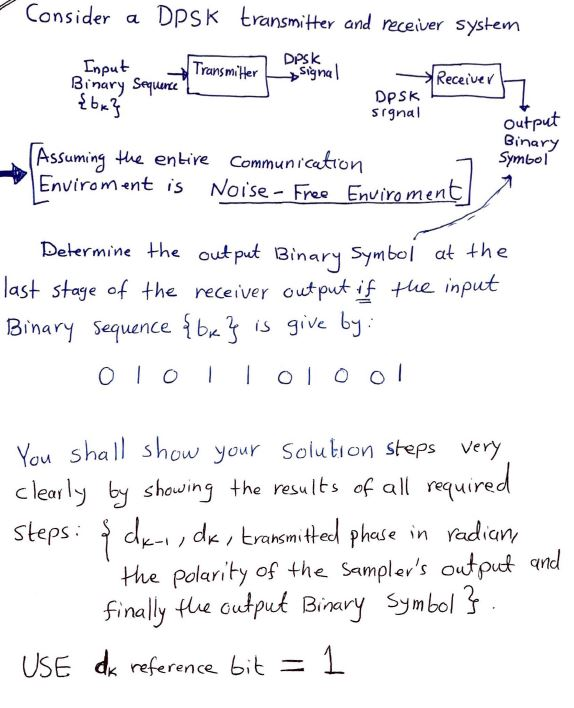 Consider a DPSK transmitter and receiver system
Input
Binary Sequence
{bₖ}
Transmitter
DPSK
signal
DPSK
signal
Receiver
output
Binary
Symbol
Assuming the entire Communication
Enviroment is Noise-Free Enviroment
Determine the output Binary Symbol at the
last stage of the receiver output if the input
Binary sequence {bₖ} is give by:
0 1 0 1 1 0 1 0 0 1
You shall show your Solution steps very
clearly by showing the results of all required
steps: { dₖ₋₁, dₖ, transmitted phase in radian,
the polarity of the Sampler's output and
finally the output Binary Symbol }.
USE dₖ reference bit = 1